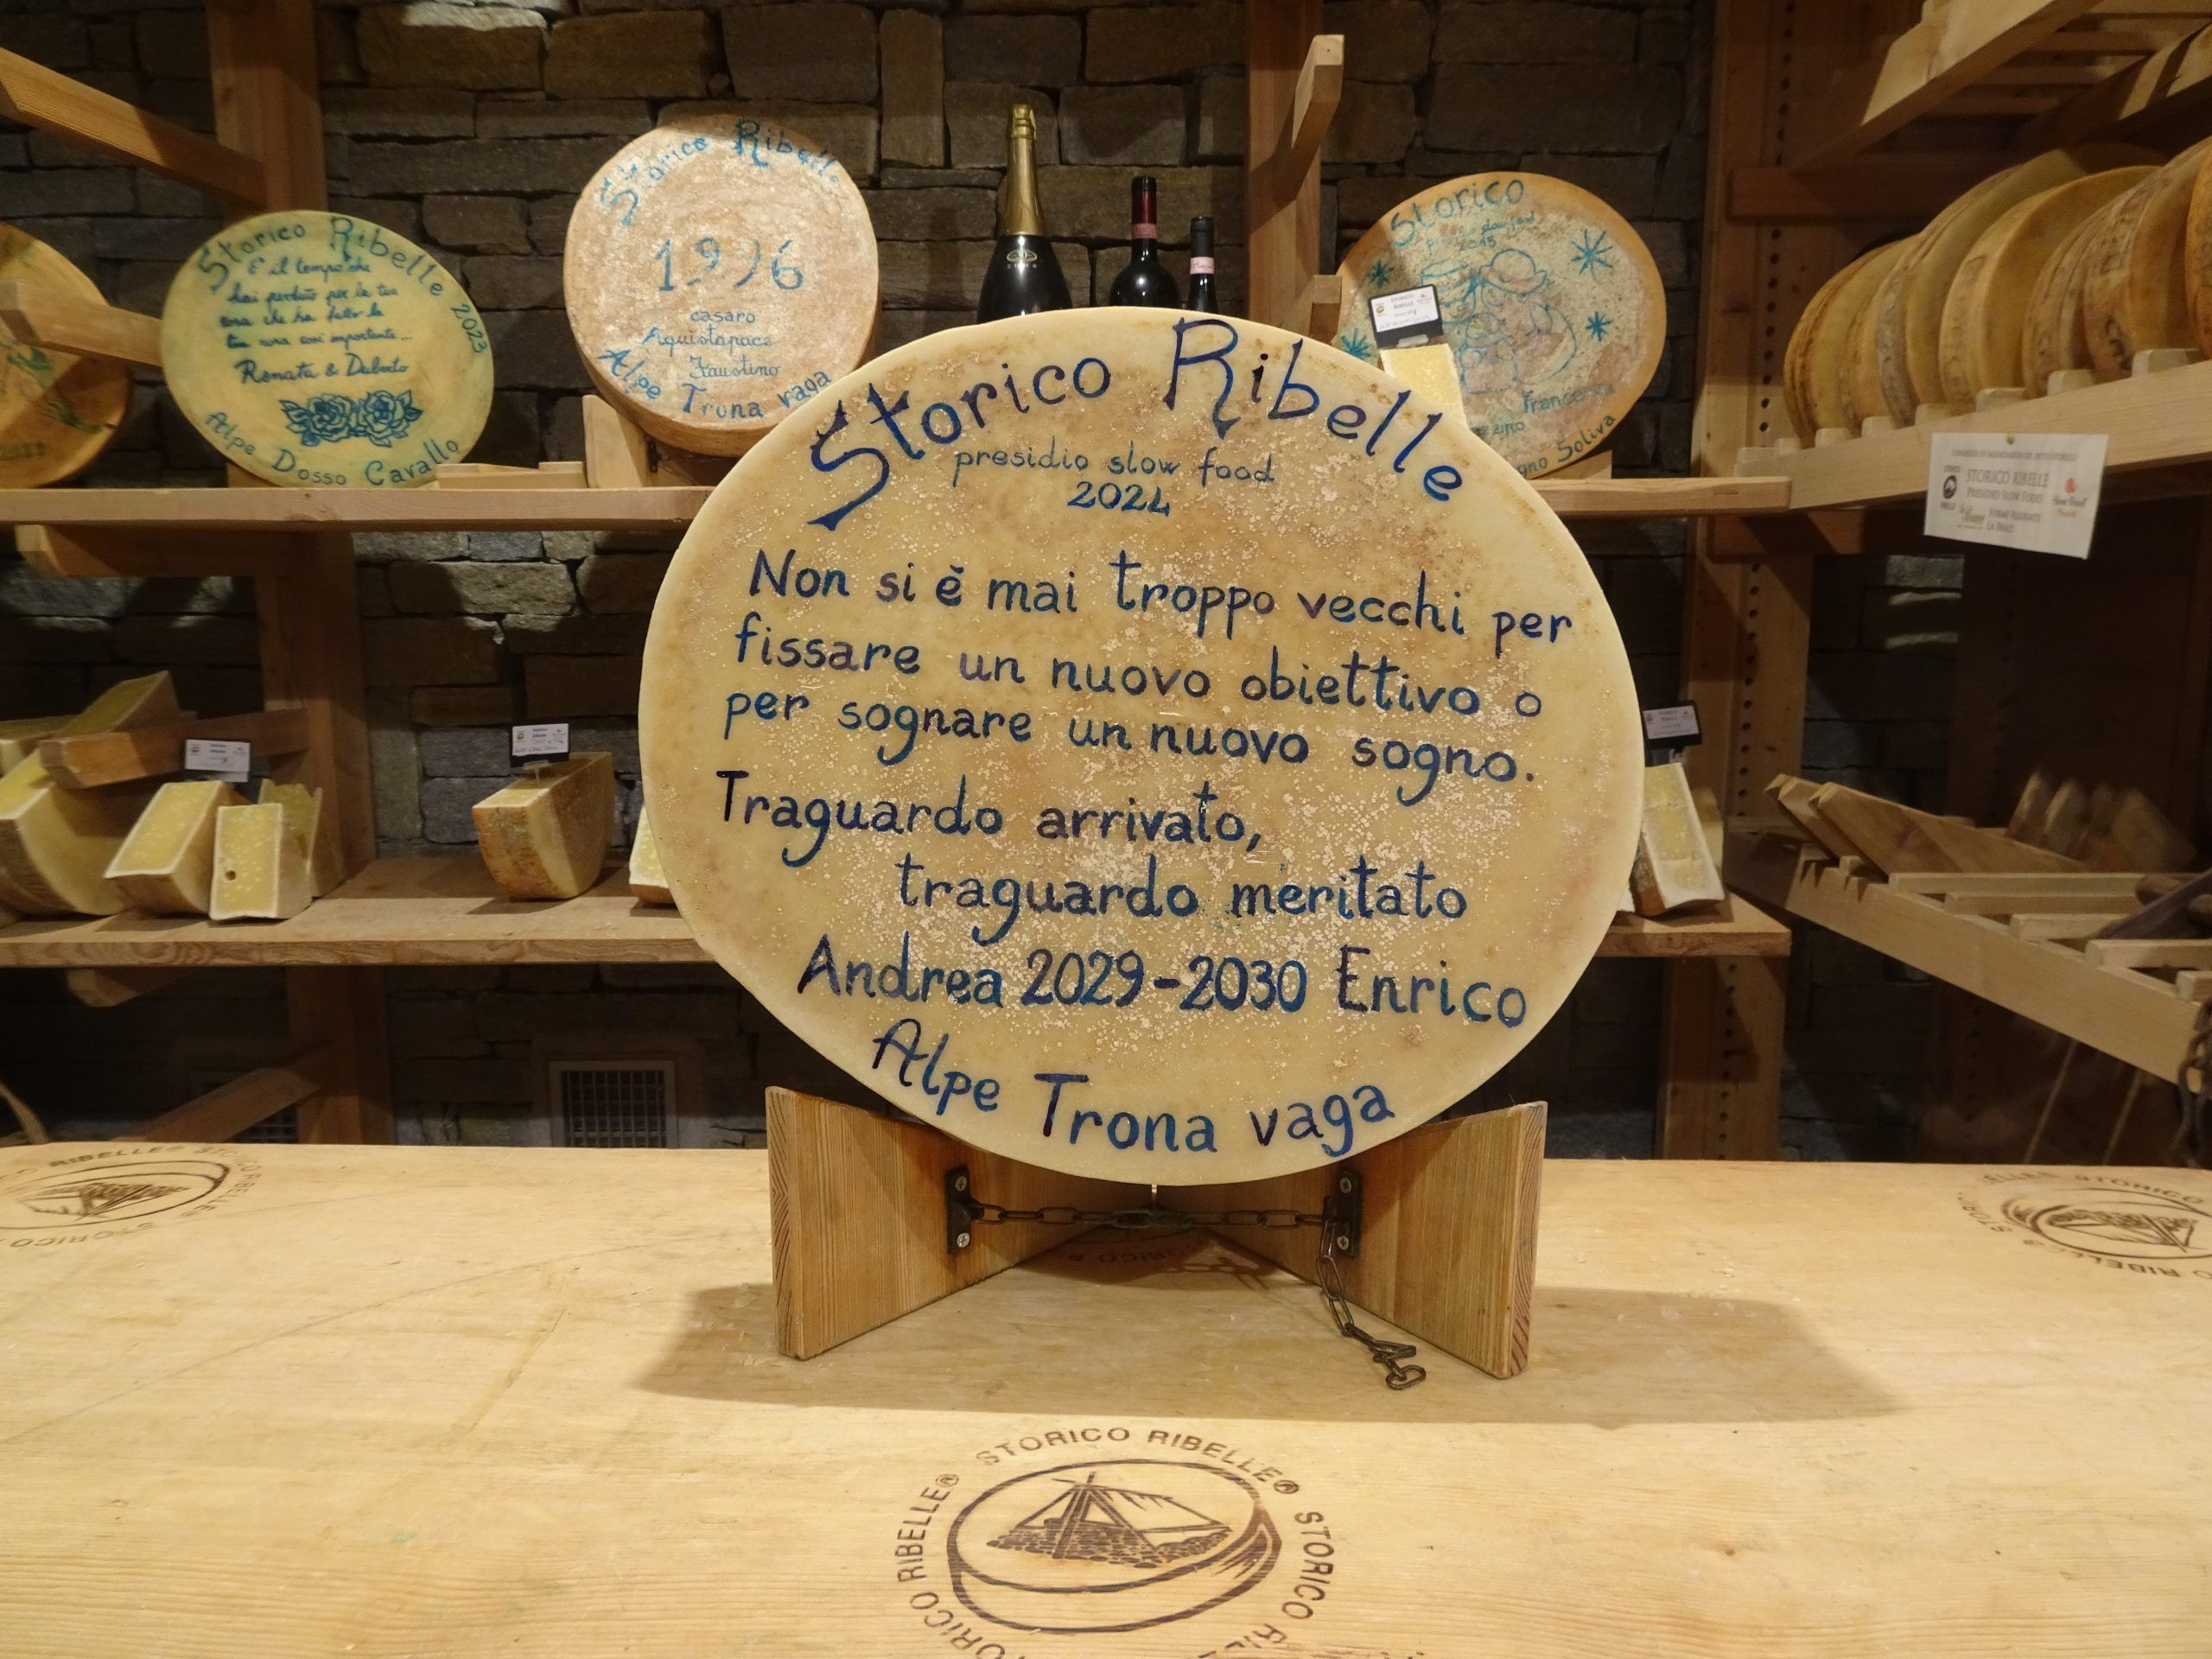 Storico Ribelle
presidio slow food
2024
Non si è mai troppo vecchi per
fissare un nuovo obiettivo o
per sognare un nuovo sogno.
Traguardo arrivato,
traguardo meritato
Andrea 2029-2030 Enrico
Alpe Trona vaga
Storico Ribelle 2023
E' il tempo che
hai perduto per la tua
rosa che ha fatto la
tua rosa così importante...
Renata &
Alpe Dosso Cavallo
Storico Ribelle
1996
casaro
Aquistapace
Faustino
Alpe Trona vaga
Storico
2015
Francesca
Soliva
STORICO RIBELLE
PRESIDIO SLOW FOOD
STORICO RIBELLE® STORICO
RIBELLE® STORICO
STORICO RIBELLE® STORICO RIBELLE®